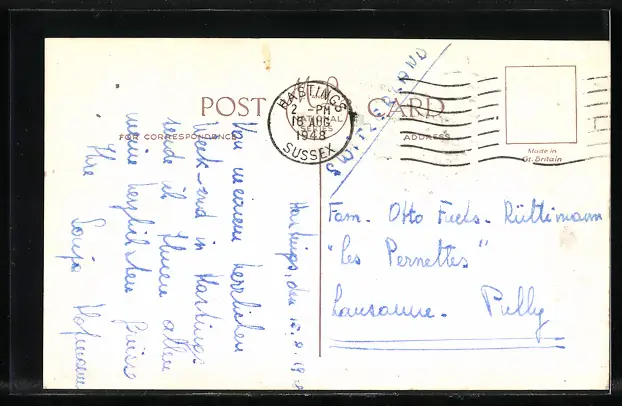 POST CARD
FOR CORRESPONDENCE
ADDRESS
HASTINGS
2 - PM
18 AUG
1948
SUSSEX
NATIONAL
SERIES
Made in
Gt. Britain
SWITZERLAND
Hastings, den
Von meinem herrlichen
Week-end in Hastings
sende ich Ihnen allen
meine herzlichsten Grüsse
Ihre Sonja
Fam. Otto Fuchs-Rüttimann
"Les Pernettes"
Lausanne - Pully